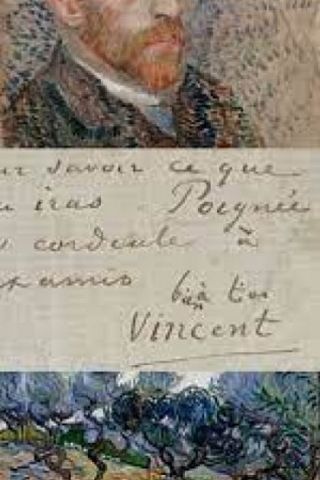 ur savoir ce que
u iras Poignée
s cordiale à
x amis
bien à toi
Vincent